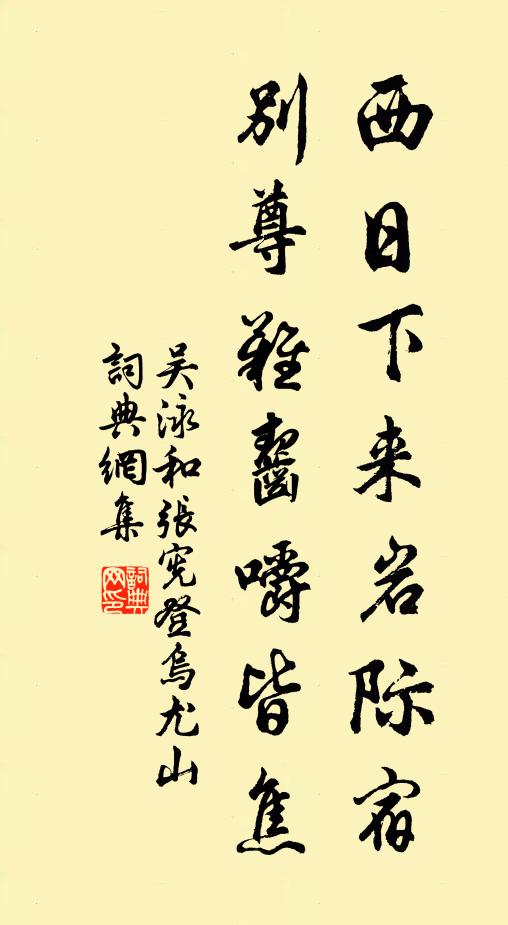 西日下来岩际宿
别尊难齧嚼皆焦
吴泳和張宪登烏尤山
詞典網集
詞典
网印